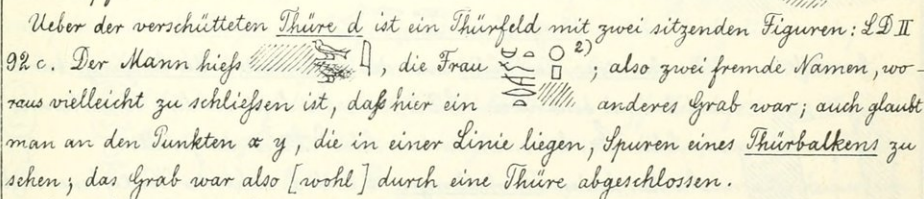 Ueber der verschütteten Thüre d ist ein Thürfeld mit zwei sitzenden Figuren: LD II
92 c. Der Mann hieß , die Frau 2) ; also zwei fremde Namen, wo-
raus vielleicht zu schließen ist, daß hier ein anderes Grab war; auch glaubt
man an den Punkten x y, die in einer Linie liegen, Spuren eines Thürbalkens zu
sehen; das Grab war also [wohl] durch eine Thüre abgeschlossen.